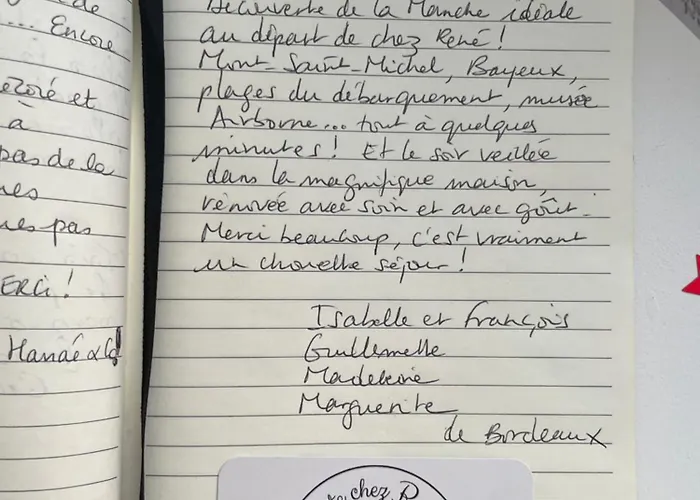 de
... Encore
et
à
pas de la
pas
MERCI !
Hanaé & Co!
Découverte de la Manche idéale
au départ de chez René !
Mont-Saint-Michel, Bayeux,
plages du débarquement, musée
Airborne... tout à quelques
minutes ! Et le soir veillée
dans la magnifique maison,
rénovée avec soin et avec goût.
Merci beaucoup, c'est vraiment
un chouette séjour !
Isabelle et François
Guillemette
Madeleine
Marguerite
de Bordeaux
chez R